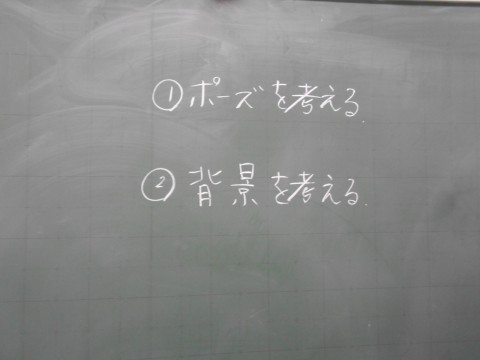 ①ポーズを考える.
②背景を考える.